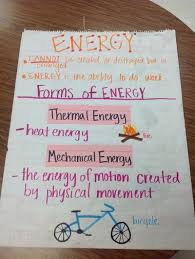 ENERGY
• CANNOT be created or destroyed but is changed
• ENERGY is the ability to do work
Forms of ENERGY
Thermal Energy
- heat energy
fire
Mechanical Energy
- the energy of motion created
by physical movement
bicycle